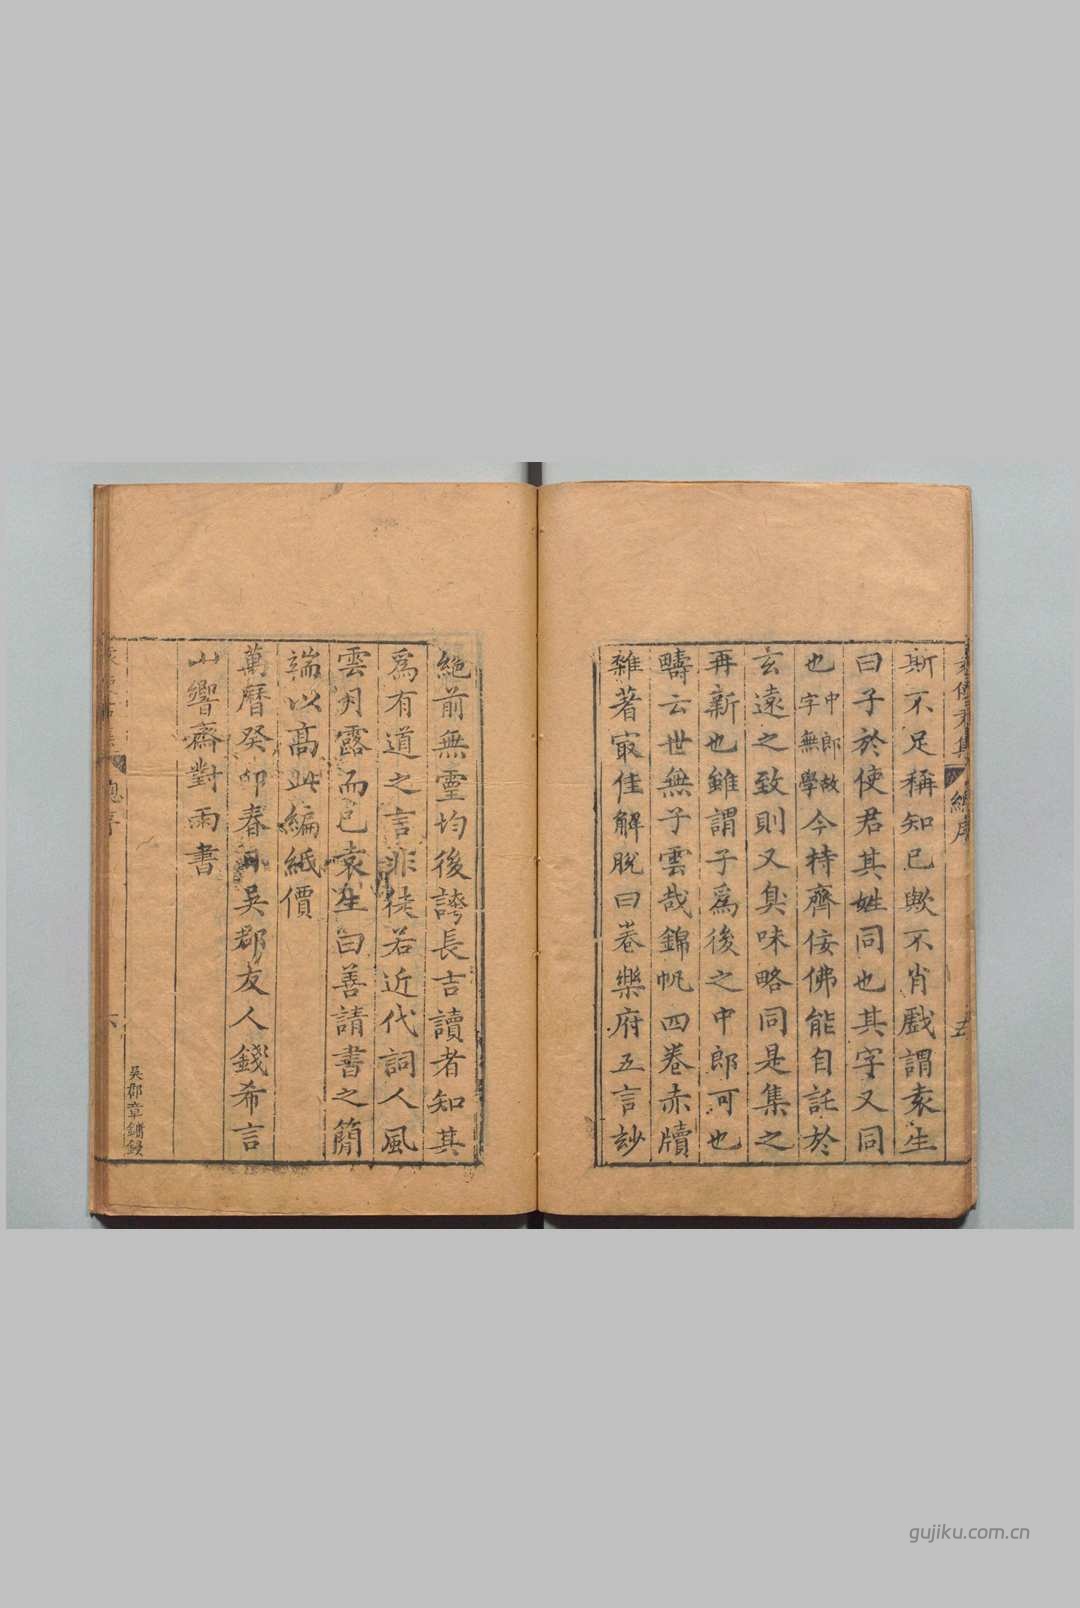 袁使君集 總序 五
斯不足稱知已歟不肖戲謂袁生
曰子於使君其姓同也其字又同
也中郎故字無學今持齋佞佛能自託於
玄遠之致則又臭味略同是集之
再新也雖謂子爲後之中郎可也
疇云世無子雲哉錦帆四卷赤牘
雜著㝡佳解脫曰卷樂府五言玅
絕前無靈均後誇長吉讀者知其
爲有道之言非徒若近代詞人風
雲月露而已袁生曰善請書之簡
端以高此編紙價
萬曆癸卯春日吳郡友人錢希言
山響齋對雨書
吳郡章鏞鋟
總序 六
gujiku.com.cn